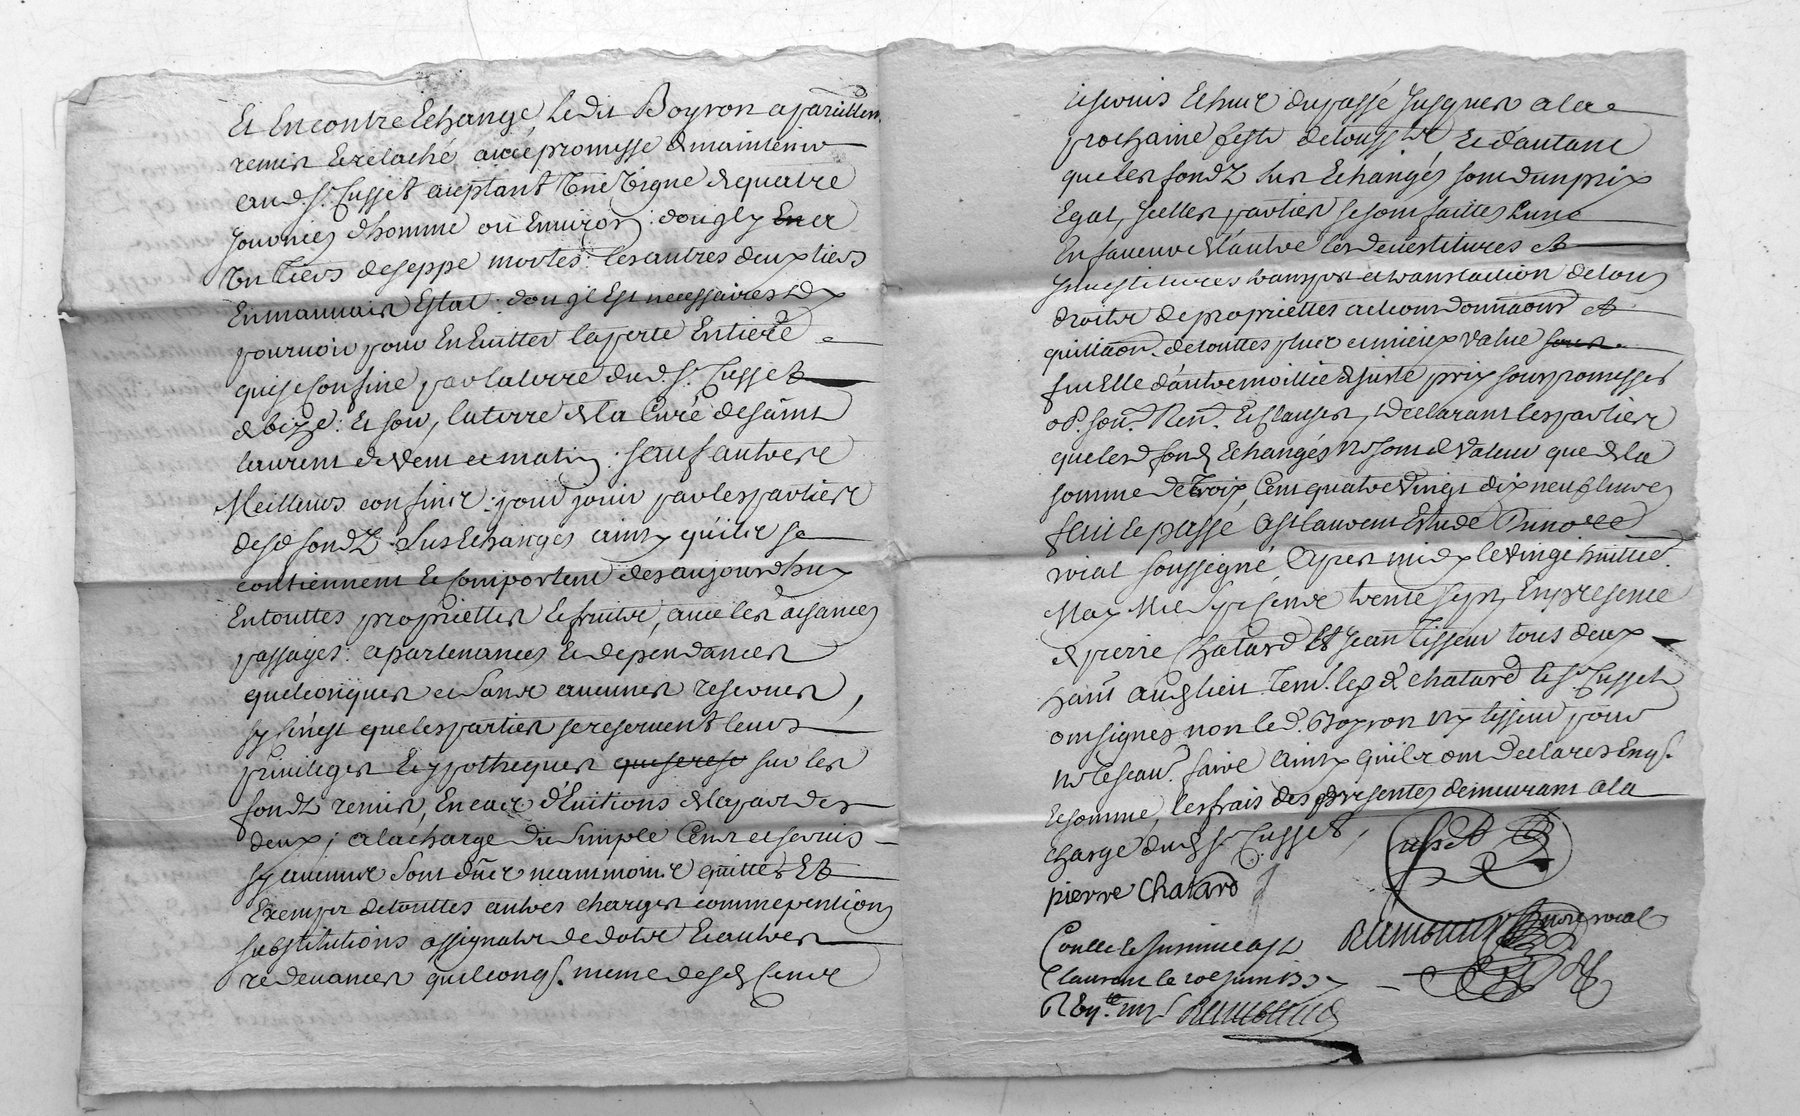 Et En contre Echange, Le dit Boyron a pareillem.
remis Et relaché avec promesse de maintenir
aud. Sr. Cusset aceptant Une Vigne de quatre
Journées d'homme ou Environ : dont il y En a
Un tiers de seppe mortes : les autres deux tiers
En mauvais Estat : dont il Est necessaire d'y
pourvoir pour En Eviter la perte Entiere
qui se confine par la terre dud. Sr. Cusset
de bize : et soir, la terre de la Cure de saint
laurent de vent et matin : sauf autres
Meilleurs confins : pour jouir par les parties
desd. fondz Sus Echangés ainsy qu'ils se
contiennent et Comportent des aujourdhuy
En touttes propriettes Et fruits, avec les aisances
passages : apartenances Et dependances
quelconques et Sans aucunes reserves,
sy n'est que les parties se reservent leurs
privileges Et ypotheques que sere so sur les
fondz remis, En cas d'Evitions de la part des
deux ; a la charge du Simple Cens et servis
sy aucuns Sont dûs neammoins quittes Et
Exempts de touttes autres charges comme pentions
substitutions assignats de dots Et autres
redevances quelconqs. meme desd. Cens
Et servis Echus du passé Jusques a la
prochaine feste de toussts Et d'autant
que les fondz Sus Echangés sont d'un prix
Egal, Icelles parties se sont faittes L'une
En faveur de l'autre les devestitures et
Investitures transport et translation de tous
droits de propriettes actions donnaons et
quittaon. de touttes plus et mieux value
fut Elle d'autre moittié de juste prix sous promesses
ob. soum. Ren. Et Clauses, declarant les parties
que lesd. fondz Echangés Ne sont de Valeur que de la
somme de Trois Cent quatre Vingt dix neuf livres
fait Et passé a St laurent Etude du not re
roial soussigné, Apres midy le Vingt huittie.
May Mil sept Cents trente sept, En presence
de pierre Chatard Et Jean Tisseur tous deux
hants audt. lieu Tem. led. chatard le Sr. Cusset
ont signes non led. Boyron Ny tisseur pour
Ne le scav. faire Ainsy qu'ils ont declares Enqs.
Et somme, les frais des presentes demeurant a la
charge dud. Sr. Cusset,
Cusset
pierre Chatard
laurent le 10e juin 1737